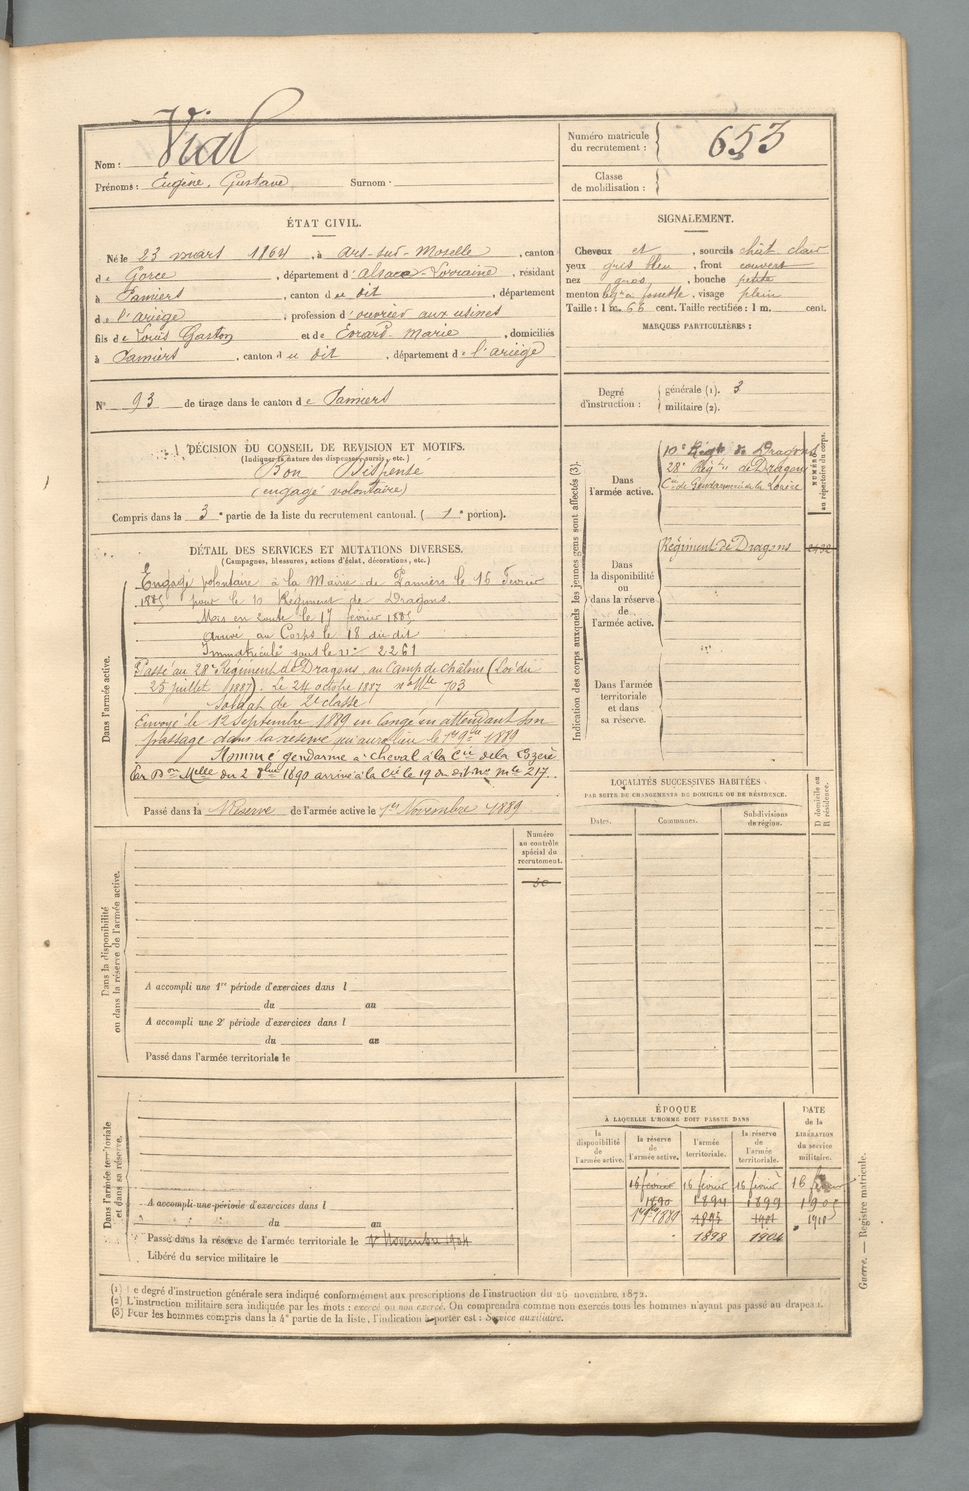 Nom : Vial
Prénoms : Eugène, Gustave Surnom :
Numéro matricule
du recrutement : 653
Classe
de mobilisation :
ÉTAT CIVIL.
Né le 23 mars 1864, à Ars-sur-Moselle, canton
de Gorce, département d'Alsace-Lorraine, résidant
à Pamiers, canton du dit, département
de l'ariège, profession d'ouvrier aux usines
fils de Louis Gaston et de Evrard Marie, domiciliés
à Pamiers, canton du dit, département de l'ariège
N° 93 de tirage dans le canton de Pamiers
SIGNALEMENT.
Cheveux et, sourcils chât clair
yeux gris bleu, front couvert
nez gros, bouche petite
menton à fossette, visage plein
Taille : 1 m. 66 cent. Taille rectifiée : 1 m. cent.
MARQUES PARTICULIÈRES :
Degré
d'instruction :
générale (1). 3
militaire (2).
DÉCISION DU CONSEIL DE REVISION ET MOTIFS.
(Indiquer la nature des dispenses, sursis, etc.)
Bon Dispensé
(engagé volontaire)
Compris dans la 3e partie de la liste du recrutement cantonal. (1e portion).
DÉTAIL DES SERVICES ET MUTATIONS DIVERSES.
(Campagnes, blessures, actions d'éclat, décorations, etc.)
Dans l'armée active.
Engagé volontaire à la Mairie de Pamiers le 16 Fevrier
1885 pour le 10 Régiment de Dragons.
Mis en route le 17 février 1885
Arrivé au Corps le 18 du dit
Immatriculé sous le n° 2261
Passé au 28e Régiment de Dragons, au Camp de Châlons (Loi du
25 juillet 1887). Le 24 octobre 1887 n° Mle 703
Soldat de 2e classe
Envoyé le 12 Septembre 1889 en congé en attendant son
passage dans la réserve qui aura lieu le 1er 9bre 1889
Nommé gendarme à cheval à la Cie de la Lozère
Par Don Melle du 2 8bre 1890 arrivé à la Cie le 19 du dit n° mle 217.
Passé dans la Réserve de l'armée active le 1er Novembre 1889
Indication des corps auxquels les jeunes gens sont affectés (3).
Dans
l'armée active.
10e Régt de Dragons
28e Regnt de Dragons
Cie de Gendarmerie de la Lozère
NUMÉROS
au répertoire du corps.
Dans
la disponibilité
ou
dans la réserve
de
l'armée active.
Régiment de Dragons
Dans l'armée
territoriale
et dans
sa réserve.
LOCALITÉS SUCCESSIVES HABITÉES
PAR SUITE DE CHANGEMENTS DE DOMICILE OU DE RÉSIDENCE.
Dates. Communes. Subdivisions
de région.
D domicile ou
R résidence.
Numéro
au contrôle
spécial du
recrutement.
Dans la disponibilité
ou dans la réserve de l'armée active.
A accompli une 1re période d'exercices dans l
du au
A accompli une 2e période d'exercices dans l
du au
Passé dans l'armée territoriale le
Dans l'armée territoriale
et dans sa réserve.
A accompli une période d'exercices dans l
du au
Passé dans la réserve de l'armée territoriale le 1er Novembre 1904
Libéré du service militaire le
ÉPOQUE
À LAQUELLE L'HOMME DOIT PASSER DANS
la
disponibilité
de
l'armée active.
la réserve
de
l'armée active.
l'armée
territoriale.
la réserve
de
l'armée
territoriale.
DATE
de la
LIBÉRATION
du service
militaire.
16 février 16 février 16 février 16 février
1890 1894 1899 1905
1er 9bre 1889 1895 1901 1910
1898 1904
(1) Le degré d'instruction générale sera indiqué conformément aux prescriptions de l'instruction du 26 novembre 1872.
(2) L'instruction militaire sera indiquée par les mots : exercé ou non exercé. On comprendra comme non exercés tous les hommes n'ayant pas passé au drapeau.
(3) Pour les hommes compris dans la 4e partie de la liste, l'indication à porter est : Service auxiliaire.
Guerre. — Registre matricule.